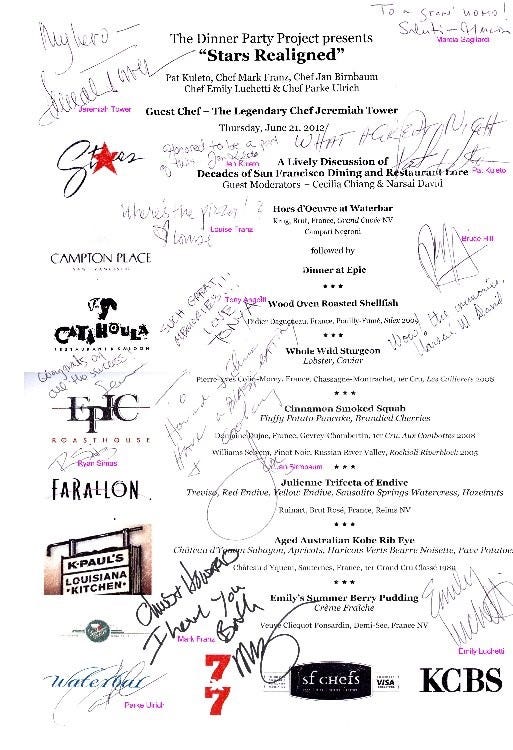 To a grand womo!
Saluti - Marcia
Marcia Gagliardi
My hero -
Jeremiah Tower
Jeremiah Tower
The Dinner Party Project presents
"Stars Realigned"
Pat Kuleto, Chef Mark Franz, Chef Jan Birnbaum
Chef Emily Luchetti & Chef Parke Ulrich
Guest Chef – The Legendary Chef Jeremiah Tower
Thursday, June 21, 2012/
Stars
Honored to be a part
of this
WHAT A GREAT NIGHT
Pat Kuleto
A Lively Discussion of
Decades of San Francisco Dining and Restaurant Lore
Guest Moderators – Cecilia Chiang & Narsai David
Where's the pizza!?
Louise
Louise Franz
Hors d'Oeuvre at Waterbar
Krug, Brut, France, Grand Cuvée NV
Campari Negroni
Bruce Hill
followed by
Dinner at Epic
CAMPTON PLACE
SAN FRANCISCO
SUCH GREAT
MEMORIES!
LOVE
TONY A
Tony Angotti
Wood Oven Roasted Shellfish
Didier Dagueneau, France, Pouilly-Fumé, Silex 2009
Wow! The memories.
Narsai M. David
CATAHOULA
RESTAURANT & SALOON
Whole Wild Sturgeon
Lobster, Caviar
Pierre-Yves Colin-Morey, France, Chassagne-Montrachet, 1er Cru, Les Caillerets 2008
Congrats on
all the success
EPIC
ROASTHOUSE
Ryan Simas
Cinnamon Smoked Squab
Fluffy Potato Pancake, Brandied Cherries
Domaine Dujac, France, Gevrey Chambertin, 1er Cru, Aux Combottes 2008
Williams Selyem, Pinot Noir, Russian River Valley, Rochioli Riverblock 2005
Jan Birnbaum
FARALLON
Julienne Trifecta of Endive
Treviso, Red Endive, Yellow Endive, Sausalito Springs Watercress, Hazelnuts
Ruinart, Brut Rosé, France, Reims NV
K-PAUL'S
LOUISIANA
KITCHEN
Aged Australian Kobe Rib Eye
Château d'Yquem Sabayon, Apricots, Haricots Verts Beurre Noisette, Pave Potatoes
Château d'Yquem, Sauternes, France, 1er Grand Cru Classé 1989
Emily's Summer Berry Pudding
Crème Fraîche
Veuve Clicquot Ponsardin, Demi-Sec, France NV
I have you
Both
Mark Franz
Emily
Luchetti
Emily Luchetti
Waterbar
Parke Ulrich
77
sf chefs
VISA
KCBS